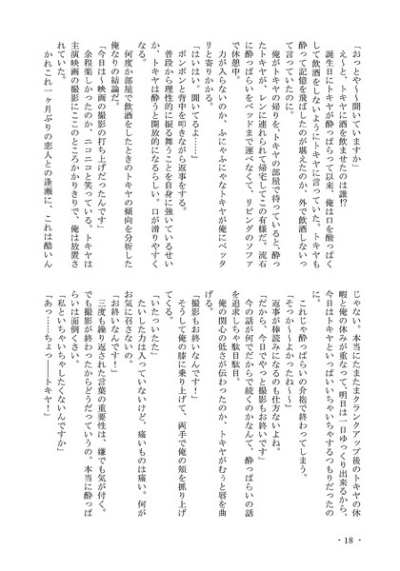 「おっとや〜〜聞いていますか」
　え〜と、トキヤに酒を飲ませたのは誰⁉
　誕生日にトキヤが酔っぱらって以来、俺は口を酸っぱく
して飲酒をしないようにトキヤに言っていた。トキヤも
酔って記憶を飛ばしたのが堪えたのか、外で飲酒しないっ
て言っていたのに。
　俺がトキヤの帰りを、トキヤの部屋で待っていると、酔っ
たトキヤが、レンに連れられて帰宅してこの有様だ。流石
に酔っぱらいをベッドまで運べなくて、リビングのソファ
で休憩中。
　力が入らないのか、ふにゃふにゃなトキヤが俺にベッタ
リと寄りかかる。
「はいはい。聞いてるよ……」
　ポンポンと背中を叩きながら返事をする。
　普段から理性的に振る舞うことを自身に強いているせい
か、トキヤは酔うと開放的になるらしい。口が滑りやすく
なる。
　何度か部屋で飲酒をしたときのトキヤの傾向を分析した
俺なりの結論だ。
「今日は〜映画の撮影の打ち上げだったんです」
　余程楽しかったのか、ニコニコと笑っている。トキヤは
主演映画の撮影にここのところかかりきりで、俺は放置さ
れていた。
　かれこれ一ヶ月ぶりの恋人との逢瀬に、これは酷いん
じゃない。本当にたまたまクランクアップ後のトキヤの休
暇と俺の休みが重なって、明日は一日ゆっくり出来るから、
今日はトキヤといっぱいいちゃいちゃするつもりだったの
に。
　これじゃ酔っぱらいの介抱で終わってしまう。
「そっか〜〜よかったね〜〜」
　返事が棒読みになるのも仕方ないよね。
「だから、今日でやっと撮影もお終いです」
　今の話が何でだからで続くのかなんて、酔っぱらいの話
を追求しちゃ駄目駄目。
　俺の関心の低さが伝わったのか、トキヤがむぅと唇を曲
げる。
「撮影もお終いなんです！」
　そうして俺の膝に乗り上げて、両手で俺の頬を抓り上げ
てくる。
「いたっいたた」
　たいした力は入っていないけど、痛いものは痛い。何が
お気に召さないの。
「お終いなんです！」
　三度も繰り返された言葉の重要性は、嫌でも気が付く。
でも撮影が終わったからどうだっていうの。本当に酔っぱ
らいは面倒くさい。
「私といちゃいちゃしたくないんですか」
「あっ……ちょっ――トキヤ！」
・18・